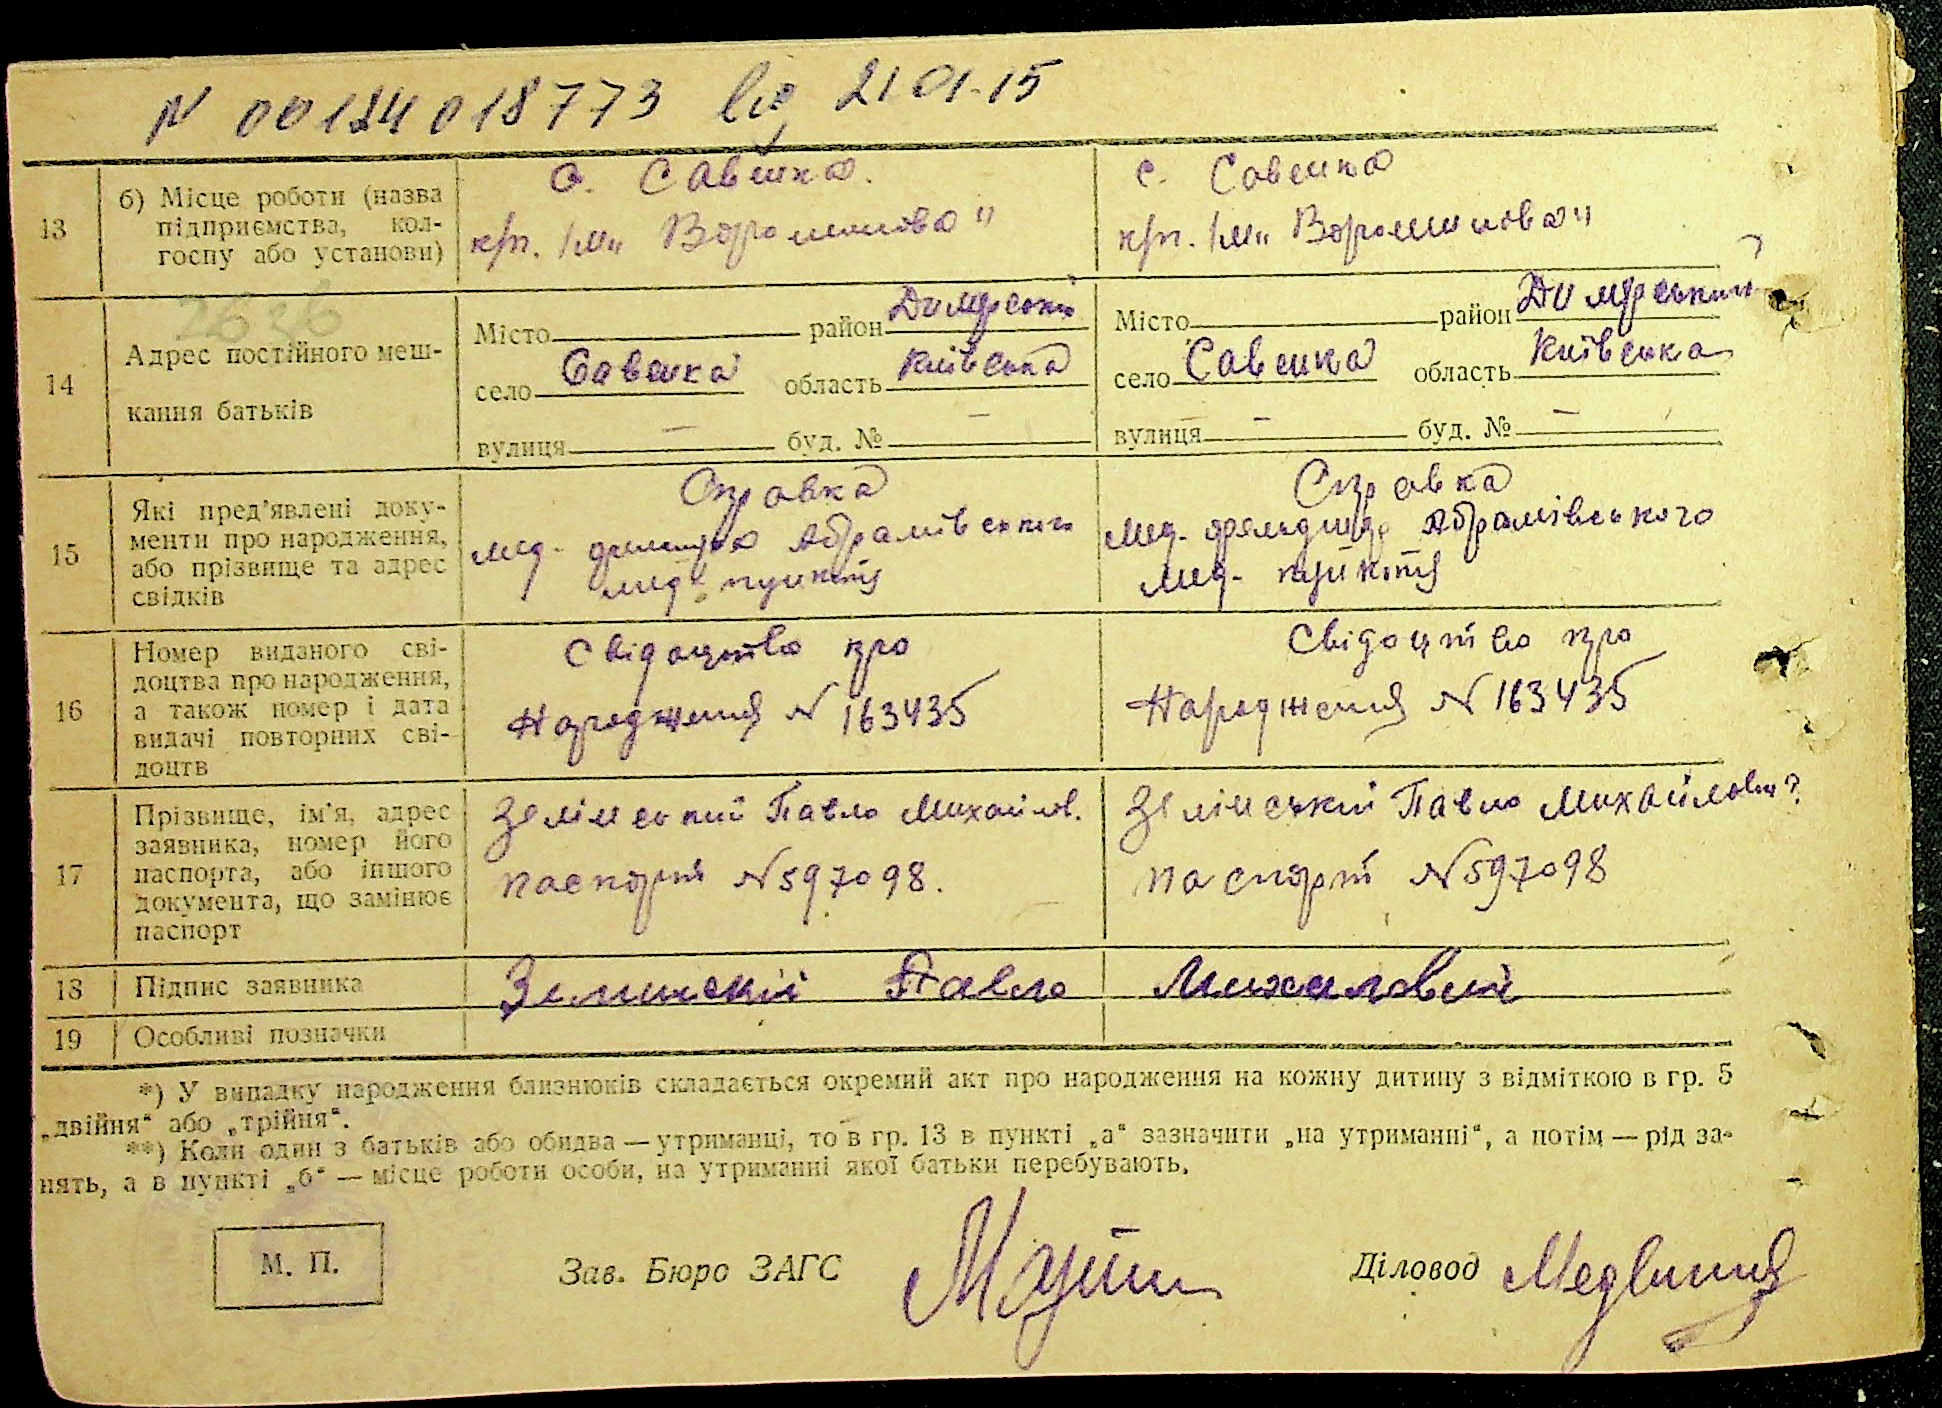 N 00124018773 від 21.01.15
13
б) Місце роботи (назва підприємства, колгоспу або установи)
с. Савенка.
к/г. ім. „Ворошилова"
с. Савенка
к/г. ім. „Ворошилова"
14
2626
Адрес постійного мешкання батьків
Місто район Димерський
село Савенка область Київська
вулиця — буд. № —
Місто район Димерський
село Савенка область Київська
вулиця — буд. № —
15
Які пред'явлені документи про народження, або прізвище та адрес свідків
Справка
мед. фельдшера Абрамівського
мед. пункту
Справка
мед. фельдшера Абрамівського
мед. пункту
16
Номер виданого свідоцтва про народження, а також номер і дата видачі повторних свідоцтв
Свідоцтво про
Народження N 163435
Свідоцтво про
Народження N 163435
17
Прізвище, ім'я, адрес заявника, номер його паспорта, або іншого документа, що замінює паспорт
Зелінський Павло Михайлов.
паспорт N 597098.
Зелінський Павло Михайлович
паспорт N 597098
18
Підпис заявника
Зелинский Павло Михаловий
19
Особливі позначки
*) У випадку народження близнюків складається окремий акт про народження на кожну дитину з відміткою в гр. 5
„двійня" або „трійня".
**) Коли один з батьків або обидва — утриманці, то в гр. 13 в пункті „а" зазначити „на утриманні", а потім — рід за-
нять, а в пункті „б" — місце роботи особи, на утриманні якої батьки перебувають.
М. П.
Зав. Бюро ЗАГС
Діловод